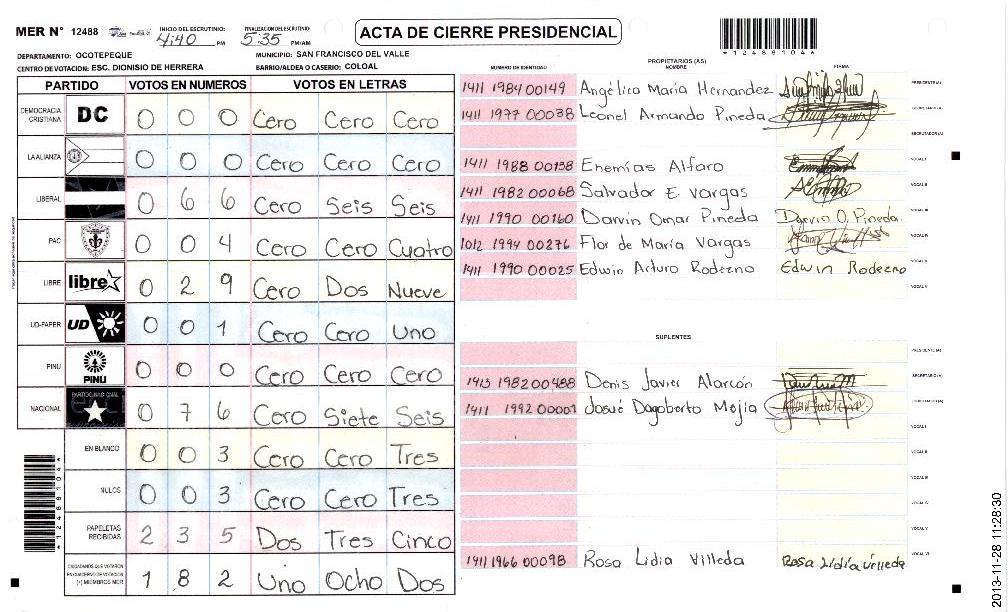 MER N° 12488
INICIO DEL ESCRUTINIO:
4:40 PM
FINALIZACION DEL ESCRUTINIO:
5:35 PM/AM
ACTA DE CIERRE PRESIDENCIAL
*12488104*
DEPARTAMENTO: OCOTEPEQUE
MUNICIPIO: SAN FRANCISCO DEL VALLE
CENTRO DE VOTACION: ESC. DIONISIO DE HERRERA
BARRIO/ALDEA O CASERIO: COLOAL
PARTIDO VOTOS EN NUMEROS VOTOS EN LETRAS
DEMOCRACIA CRISTIANA DC 0 0 0 Cero Cero Cero
LA ALIANZA 0 0 0 Cero Cero Cero
LIBERAL 0 6 6 Cero Seis Seis
PAC 0 0 4 Cero Cero Cuatro
LIBRE libre 0 2 9 Cero Dos Nueve
UD-FAPER UD 0 0 1 Cero Cero Uno
PINU PINU 0 0 0 Cero Cero Cero
NACIONAL PARTIDO NACIONAL 0 7 6 Cero Siete Seis
EN BLANCO 0 0 3 Cero Cero Tres
NULOS 0 0 3 Cero Cero Tres
PAPELETAS RECIBIDAS 2 3 5 Dos Tres Cinco
CIUDADANOS QUE VOTARON EN CUADERNO DE VOTACION (+) MIEMBROS MER 1 8 2 Uno Ocho Dos
PROPIETARIOS (AS)
NUMERO DE IDENTIDAD NOMBRE FIRMA
1411 1984 00149 Angélica María Hernandez PRESIDENTE(A)
1411 1977 00038 Leonel Armando Pineda SECRETARIO(A)
ESCRUTADOR(A)
1411 1988 00138 Enemías Alfaro VOCAL I
1411 1982 00068 Salvador E. Vargas VOCAL II
1411 1990 00160 Darvin Omar Pineda Darvin O. Pineda. VOCAL III
1012 1994 00276 Flor de María Vargas VOCAL IV
1411 1990 00025 Edwin Arturo Rodezno Edwin Rodezno VOCAL V
VOCAL VI
SUPLENTES
PRESIDENTE(A)
1413 1982 00488 Denis Javier Alarcón SECRETARIO(A)
1411 1992 00001 Josué Dagoberto Mejia ESCRUTADOR(A)
VOCAL I
VOCAL II
VOCAL III
VOCAL IV
VOCAL V
1411 1966 00098 Rosa Lidia Villeda Rosa Lidia Villeda VOCAL VI
*12488104*
2013-11-28 11:28:30